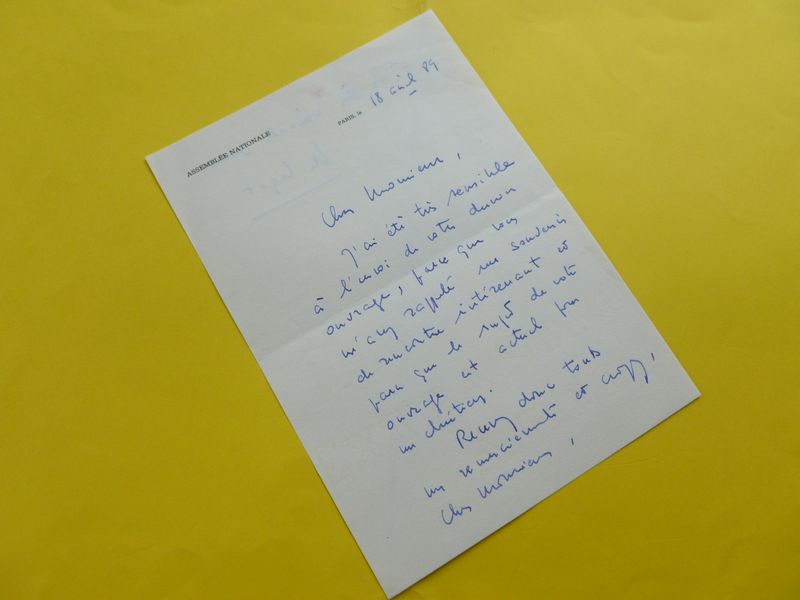 ASSEMBLÉE NATIONALE
PARIS, le 18 avril 89
Cher Monsieur,
J'ai été très sensible
à l'envoi de votre dernier
ouvrage, parce que vous
m'avez rappelé un souvenir
de rencontre intéressant et
parce que le sujet de votre
ouvrage est actuel pour
un chrétien.
Recevez donc toutes
mes remerciements et croyez,
Cher Monsieur,